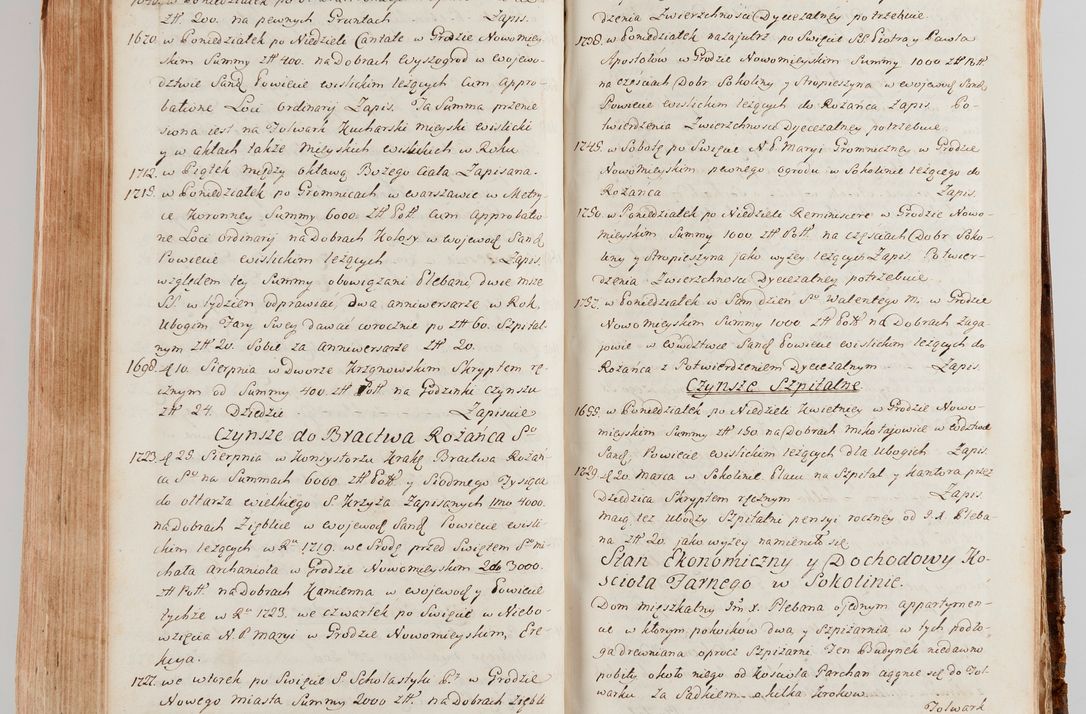 złł 200. na pewnych Gruntach Zapis.
1670. w Poniedziałek po Niedzieli Cantate w Grodzie Nowomiey-
skim Summy złł 400. na Dobrach Wyszogrod w Wojewo-
dztwie Sand. Powiecie wislickim leżących cum appro-
batione Loci Ordinarij Zapis. Ta Summa przenie
siona iest na Folwark Kucharski mieyski wislicki
y w aktach także Mieyskich wislickich w Roku
1712. w Piątek między oktawą Bożego Ciała Zapisana.
1715. w Poniedziałek po Gromnicach w warszawie w Metry-
ce Koronney Summy 6000. złł Poł. cum approbatio
ne Loci Ordinarij na Dobrach Kołosy w wojewod. Sand.
Powiecie wislickim leżących Zapis.
względem tey Summy obowiązani Plebani dwie msze
SS. w tydzien odprawiać dwa anniwersarze w Rok
Ubogim Fary Swey dawać corocznie po złł 60. Szpital-
nym złł 20. Sobie za anniwersarze złł 20.
1698. d. 10. Sierpnia w Dworze Krzyżnowskim Skryptem rę-
cznym od Summy 400. złł Poł. na Godzinki czynszu
złł 24. Dziedzic Zapisuie
Czynsze do Bractwa Rożańca So
1723. d. 25. Sierpnia w Konsystorzu Krak. Bractwa Rożań-
ca So na Summach 6000 złł Poł. y Siodmego Tysiąca
do ołtarza wielkiego S. Krzyża Zapisanych 1mo 4000.
na Dobrach Zięblice w wojewod. Sand. Powiecie wisli-
ckim leżących w Ru 1719. we Srodę przed Swiętem So Mi-
chała Archanioła w Grodzie Nowomieyskim 2do 3000.
złł Poł. na Dobrach Kamienna w wojewod. y Powiecie
tychże w Ru 1723. we czwartek po Swięcie w Niebo
wzięcia N. P. Maryi w Grodzie Nowomieyskim Ere-
kcya.
1727. we wtorek po Swięcie S. Scholastyki Py w Grodzie
Nowego Miasta Summy 2000 złł. na Dobrach Zięblic
dzenia Zwierzchnosci Dyecezalney potrzebuie.
1738. w Poniedziałek nazajutrz po Swięcie SS. Piotra y Pawła
Apostołow w Grodzie Nowomieyskim Summy 1000 złł Poł.
na częsciach Dobr Sokoliny y Stropieszyna w wojewod. Sand.
Powiecie wislickim leżących do Rożańca Zapis. Po-
twierdzenia Zwierzchnosci Dyecezalney potrzebuie.
1745. w Sobotę po Swięcie N. P. Maryi Gromniczney w Grodzie
Nowomieyskim pewnego ogrodu w Sokolinie leżącego do
Rożańca Zapis.
1750. w Poniedziałek po Niedzieli Reminiscere w Grodzie Nowo-
mieyskim Summy 1000 złł Poł. na częsciach Dobr Soko-
liny y Stropieszyna jako wyżey leżących Zapis. Potwier-
dzenia Zwierzchnosci Dyecezalney potrzebuie.
1757. w Poniedziałek w Sam dzien So Walentego M. w Grodzie
Nowomieyskim Summy 1000 złł Poł. na Dobrach Zaga-
jowie w wództwie Sand. Powiecie wislickim leżących do
Rożańca z Potwierdzeniem Dyecezalnym Zapis.
Czynsze Szpitalne
1655. w Poniedziałek po Niedzieli Kwietniey w Grodzie Nowo-
mieyskim Summy złł 150 na Dobrach Mikołajowie w wództwie
Sand. Powiecie wislickim leżących dla Ubogich Zapis.
1729. d. 20. Marca w Sokolinie Placu na Szpital y Kantora przez
Dziedzica Skryptem ręcznym Zapis.
Maią też ubodzy Szpitalni pensyi roczney od J. X. Pleba-
na złł 20. jako wyżey namieniło się
Stan Ekonomiczny y Dochodowy Ko-
scioła Farnego w Sokolinie.
Dom mieszkalny Jm X. Plebana o jednym appartymen-
cie w ktorym pokoikow dwa, y Szpiżarnia, w tych podło-
ga drewniana oprocz Szpiżarni. Ten Budynek niedawno
pobity około niego od Koscioła Parchan ciągnie się do Fol-
warku za Sadkiem o kilka krokow.
Folwark